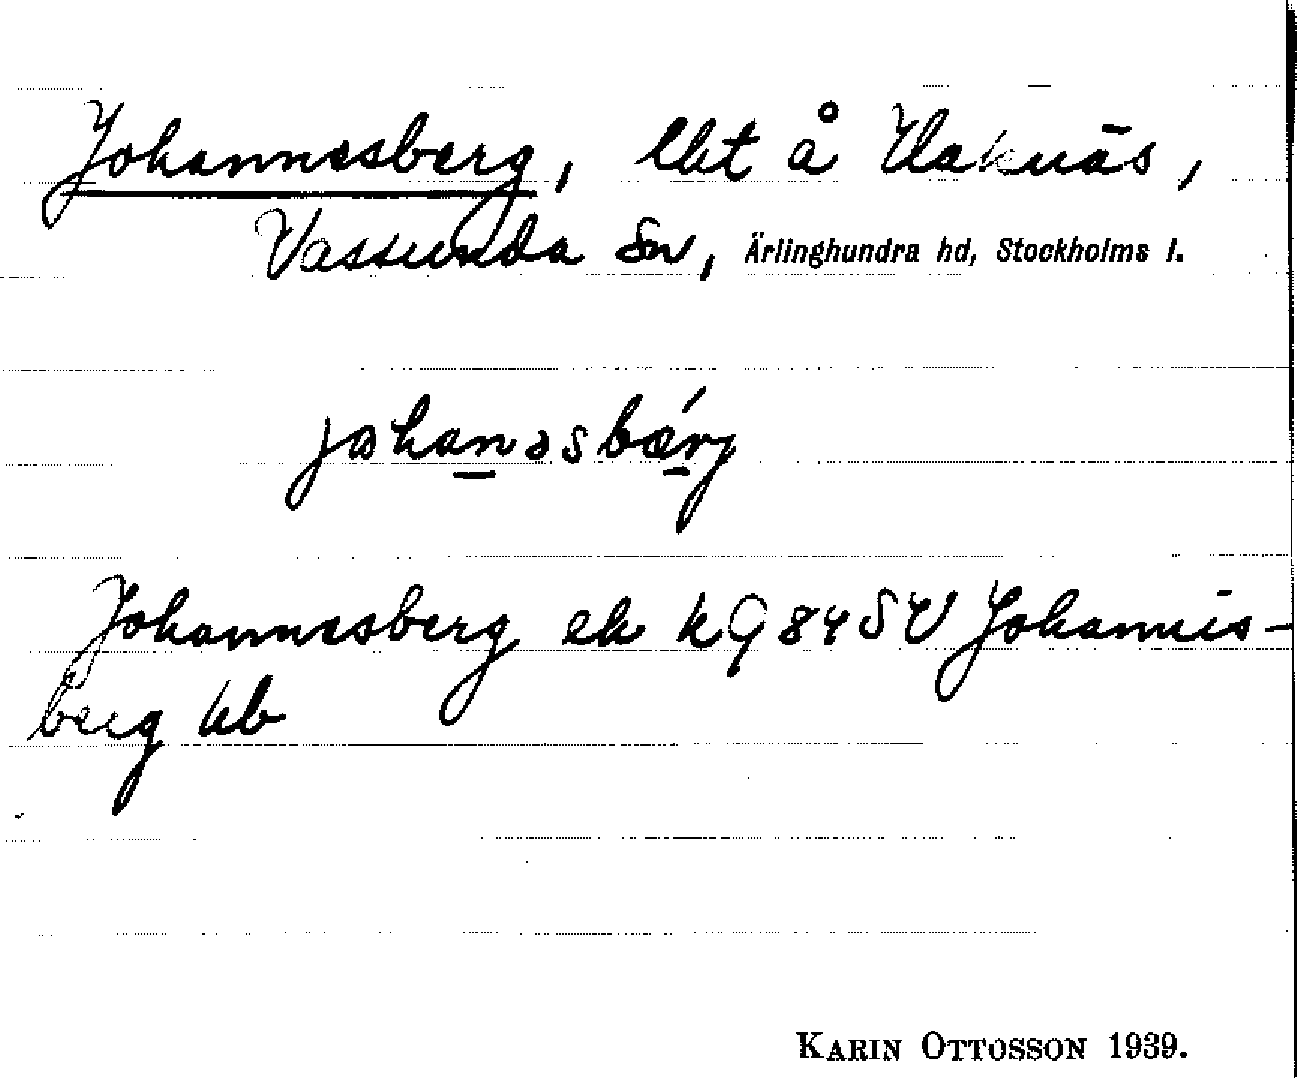 Johannesberg, lht å Vaknäs,
Vassunda sn, Ärlinghundra hd, Stockholms l.
johanəsbǽrj
Johannesberg ek kQ 84 SV Johannis-
berg kb
KARIN OTTOSSON 1939.